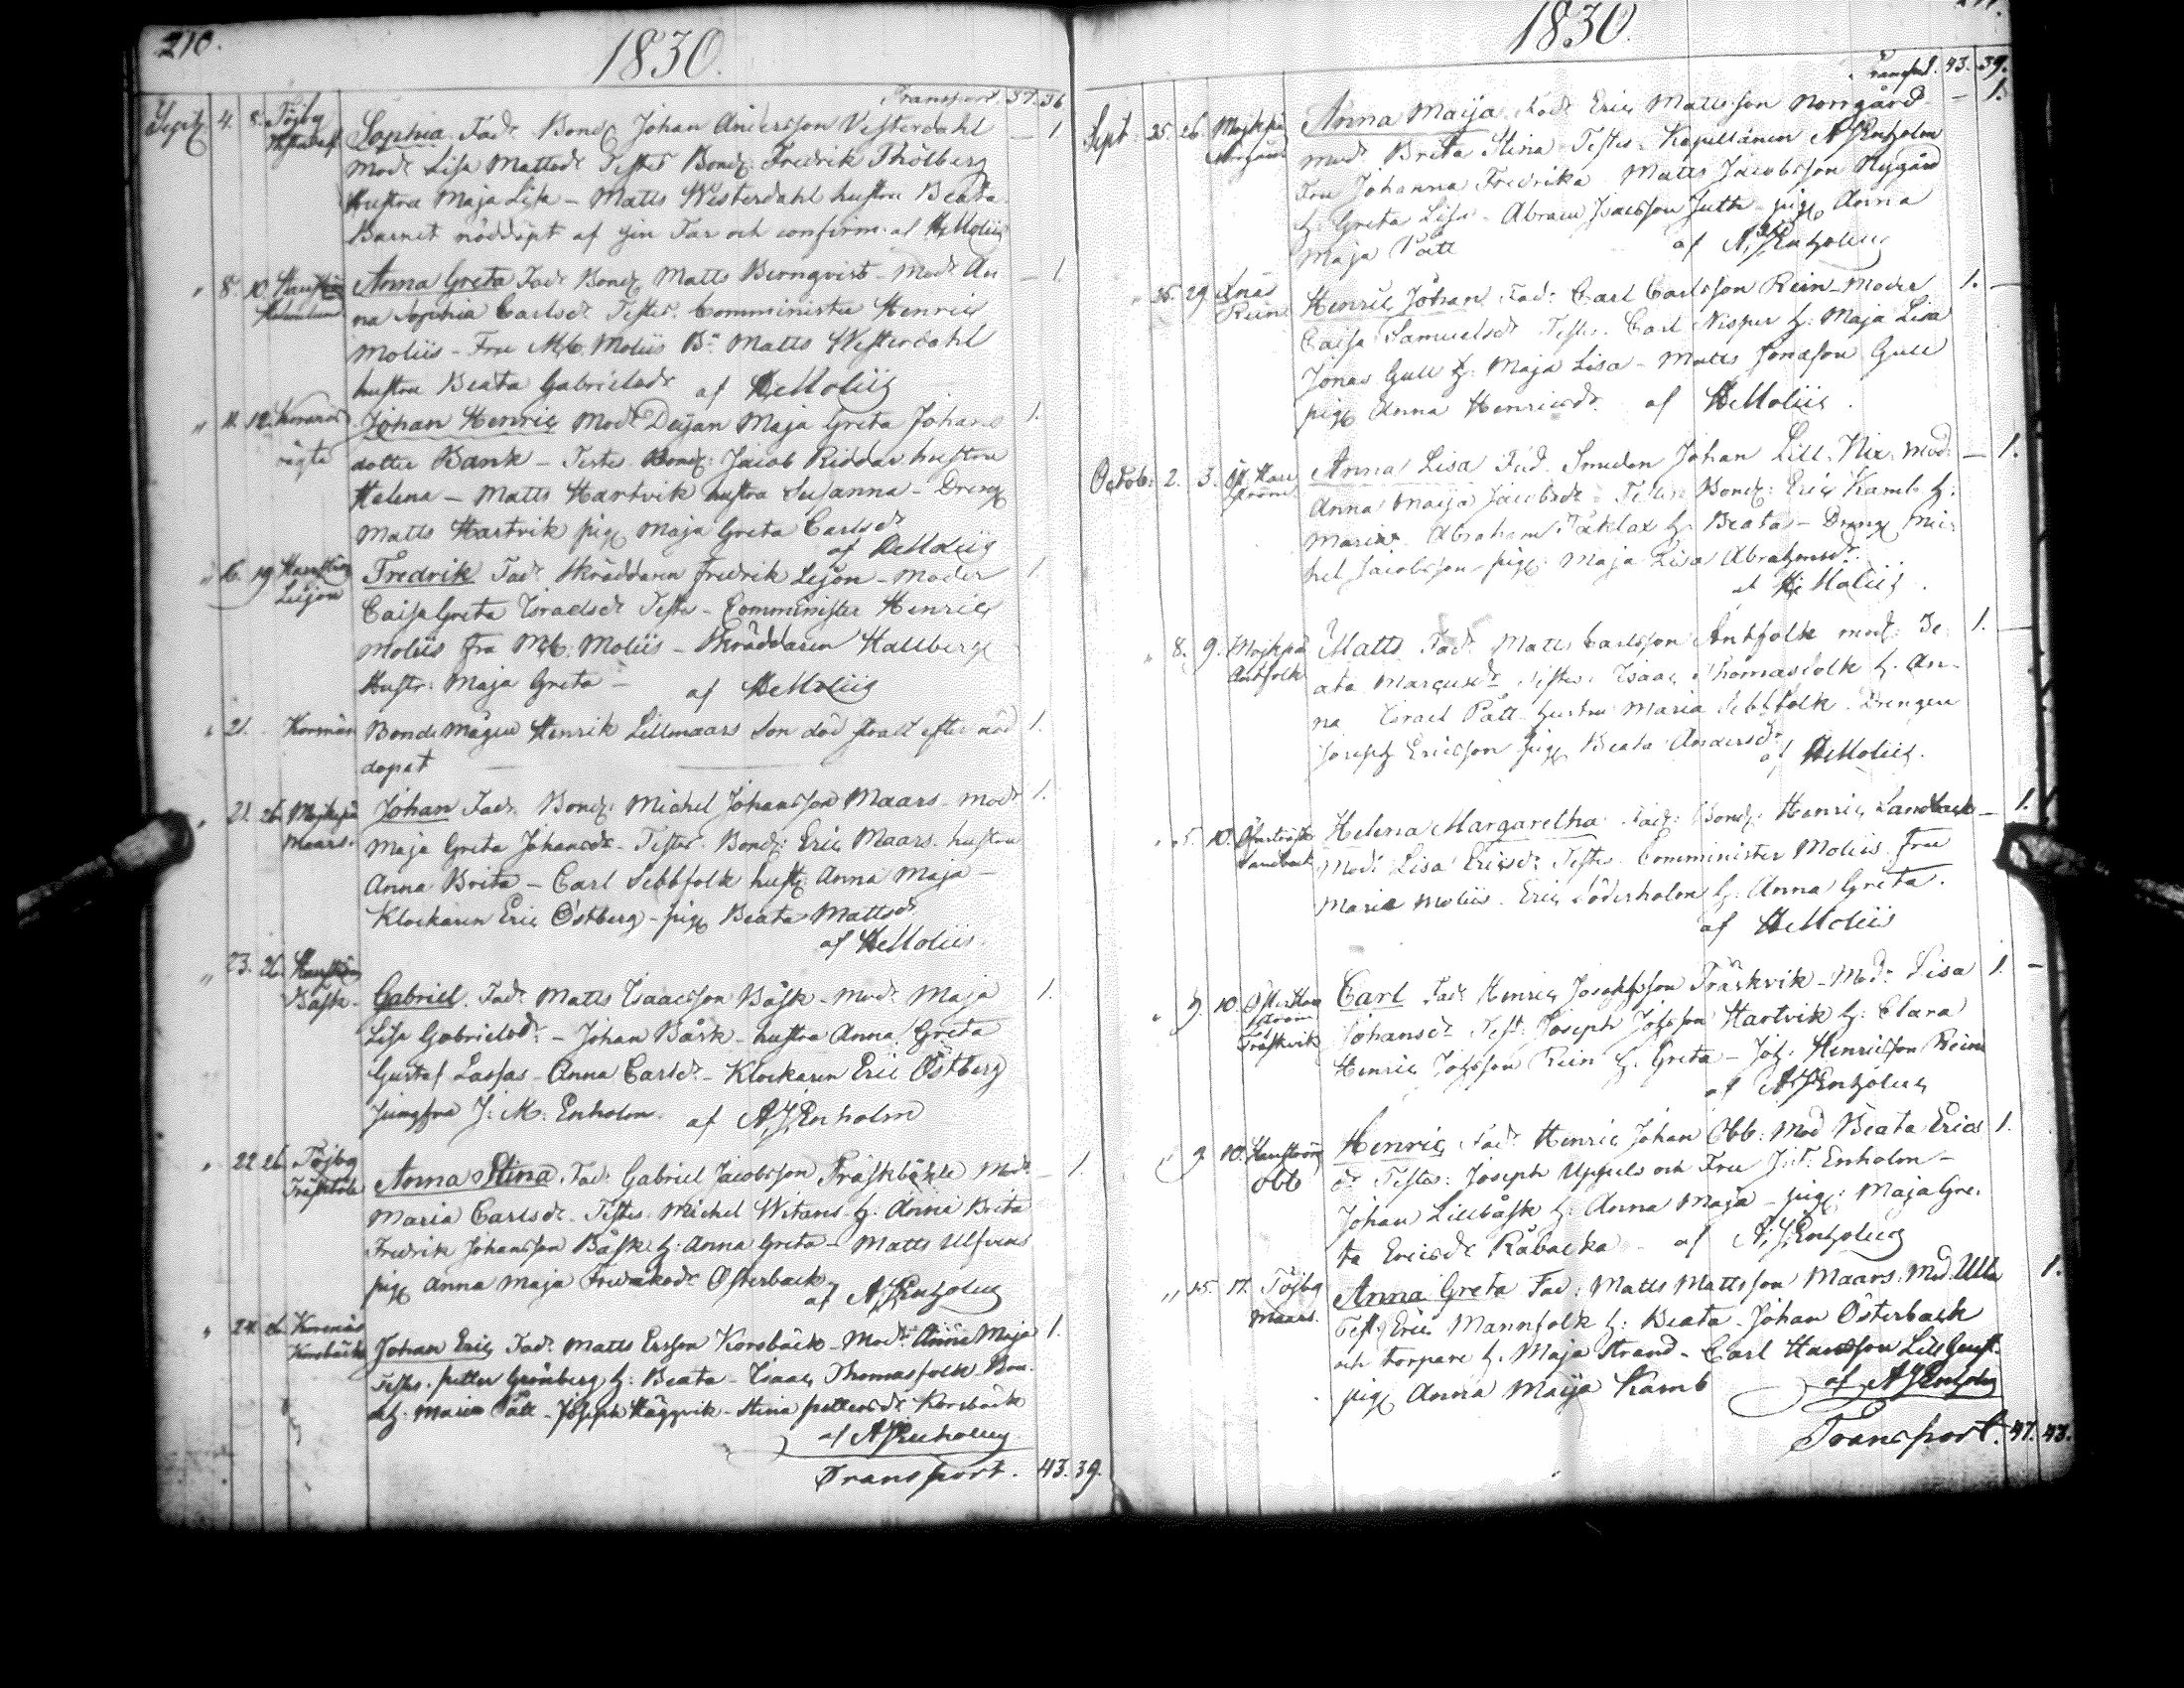 210.
1830.
Transport. 37. 36
Sept 4. 8. Töjby Sophia. Fad: Bond: Johan Andersson Westerdahl — 1
Mod: Lisa Mattsdr Testes Bond: Fredrik Thölberg
Hustru Maja Lisa — Matts Westerdahl hustru Beata
Barnet nöddöpt af sin Far och confirm: af HMoliis
" 8. 10. Anna Greta Fad: Bond: Matts Berngvist — Mod: An — 1
na Sophia Carlsdr Testes. Comminister Henric
Moliis — Fru M: C. Moliis Bn Matts Westerdahl
hustru Beata Gabrielsdr af HMoliis
" 11. 12. Korsnäs Johan Henric Mod: Dejan Maja Greta Johans 1.
dotter Bank — Testes. Bond: Jacob Riddar hustru
Helena — Matts Hartvik hustru Susanna — Dreng
Matts Hartvik pig Maja Greta Carlsdr
af HMoliis
" 16. 19. Harrström Fredrik Fad: Skräddaren Fredrik Lejon — Moder 1.
Leijon Caisa Greta Israelsdr Testes — Comminister Henric
Moliis Fru M: C: Moliis — Skräddaren Hallberg
Hustr: Maja Greta — af HMoliis
" 21. Korsnäs Bonde Mågen Henrik Lillmaars Son död straxt efter nöd 1.
dopet
" 21. 26. Mojkpä Johan Fad: Bond: Michel Johansson Maars — Mod: 1.
Maars. Maja Greta Johansdr — Testes. Bond: Eric Maars. hustru
Anna Brita — Carl Sebbfolk hust: Anna Maja —
Klockaren Eric Östberg — pig Beata Mattsdr
af HMoliis.
" 23. 26. Harrström
Båsk — Gabriel. Fad: Matts Isaacsson Båsk — Mod: Maja 1.
Lisa Gabrielsdr — Johan Båsk — hustru Anna Greta
Gustaf Lassas — Anna Carlsdr — Klockaren Eric Östberg
Jungfru J: M: Enholm. af AJEnholm
" 22 26. Töjby Anna Stina. Fad: Gabriel Jacobsson Träskböhle Mod: — 1.
Maria Carlsdr — Testes. Michel Witans h: Anna Brita
Fredrik Johansson Båsk h: Anna Greta — Matts Ulfvens
pig Anna Maja Fredriksdr Österback
af AJEnholm
" 24. 26. Korsnäs
Korsbäck Johan Eric Fad: Matts Ersson Korsbäck — Mod: Anna Maja 1.
Testes. Petter Grönberg h: Beata — Isaac Thomasfolk
h: Maria Pått — Joseph Häggvik — Stina Pettersdr Korsbäck
af AJEnholm
Transport. 43. 39.
1830.
Transport. 43. 39.
Sept. 25. 26. Mojkpä Anna Maija. Fad: Eric Mattsson Norrgård — 1.
Norrgård Mod: Brita Stina Testes. Kapellanen AJEnholm
Fru Johanna Fredrika Matts Jacobsson Nygård
h: Greta Lisa — Abram Isacsson Juth — pig Anna
Maja Pått af AJEnholm
" 25. 29 Rein Henric Johan. Fad: Carl Carlsson Rein — Moder 1. —
Caisa Samuelsdr Testes. Carl Nisper h: Maja Lisa
Jonas Gull h: Maja Lisa — Matts Jonasson Gull
pig Anna Henricsdr. af HMoliis.
Octob: 2. 3. Anna Lisa Fad. Smeden Johan Lill Nix. Mod: — 1.
Anna Maija Jacobsdr Testes Bond: Eric Kamb h:
Maria. Abraham Täklax h: Beata — Dreng Mic:
hel Jacobsson — pig: Maja Lisa Abrahamsdr.
af HMoliis.
" 8. 9. Mojkpä Matts Fad: Matts Carlsson Antfolk mod: Be: 1. —
Antfolk ata Marcusdr Testes. Isaac Thomasfolk h: An-
na Israel Pått hustru Maria Sebbfolk. Drengen
Joseph Ericsson pig Beata Andersdr
af HMoliis.
" 5. 10. Helena Margaretha. Fad: Bond: Henric Sandback — 1.
Sandback Mod: Lisa Ericsdr Testes. Comminister Moliis Fru
Maria Moliis. Eric Söderholm h: Anna Greta.
af HMoliis
" 9. 10. Carl Fad: Henric Josephsson Träskvik — Mod: Lisa 1. —
Träskvik Johansdr Test: Joseph Johsson Hartvik h: Clara
Henric Johsson Rein h: Greta — Joh: Henricsson Rein
af AJEnholm
" 9 10. Harrström Henric Fad: Henric Johan Obb: Mod Beata Erics 1.
Obb dr Testes: Joseph Uppels och Fru Enholm —
Johan Lillbåsk h: Anna Maja — pig: Maja Gre-
ta Ericsdr Råbacka — af AJEnholm
" 15. 17. Töjby Anna Greta Fad: Matts Mattsson Maars. Mod. Ulla 1.
Maars. Test: Eric Mannfolk h: Beata. Johan Österback
och torpare h: Maja Strand — Carl Hansson Lill
pig Anna Maija Kamb af AJEnholm
Transport. 47. 43.